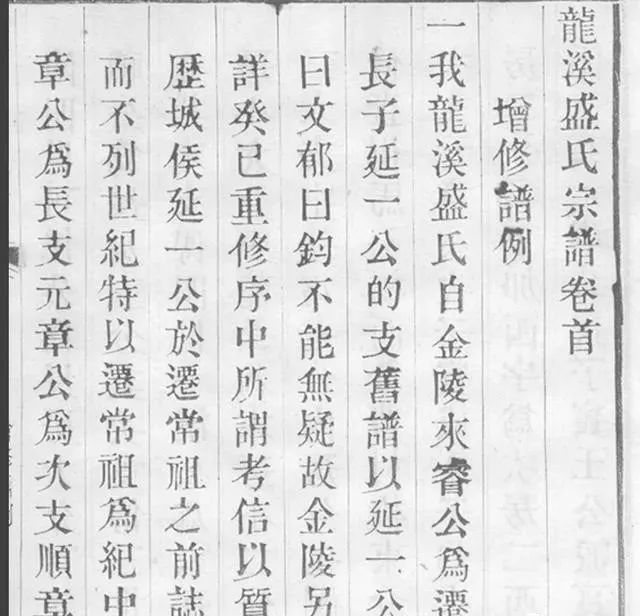 龍溪盛氏宗譜卷首
增修譜例
一我龍溪盛氏自金陵來睿公爲遷
長子延一公的支舊譜以延一公
曰文郁曰鈞不能無疑故金陵另
詳癸已重修序中所謂考信以質
歷城侯延一公於遷常祖之前誌
而不列世紀特以遷常祖爲紀中
章公爲長支元章公爲次支順章